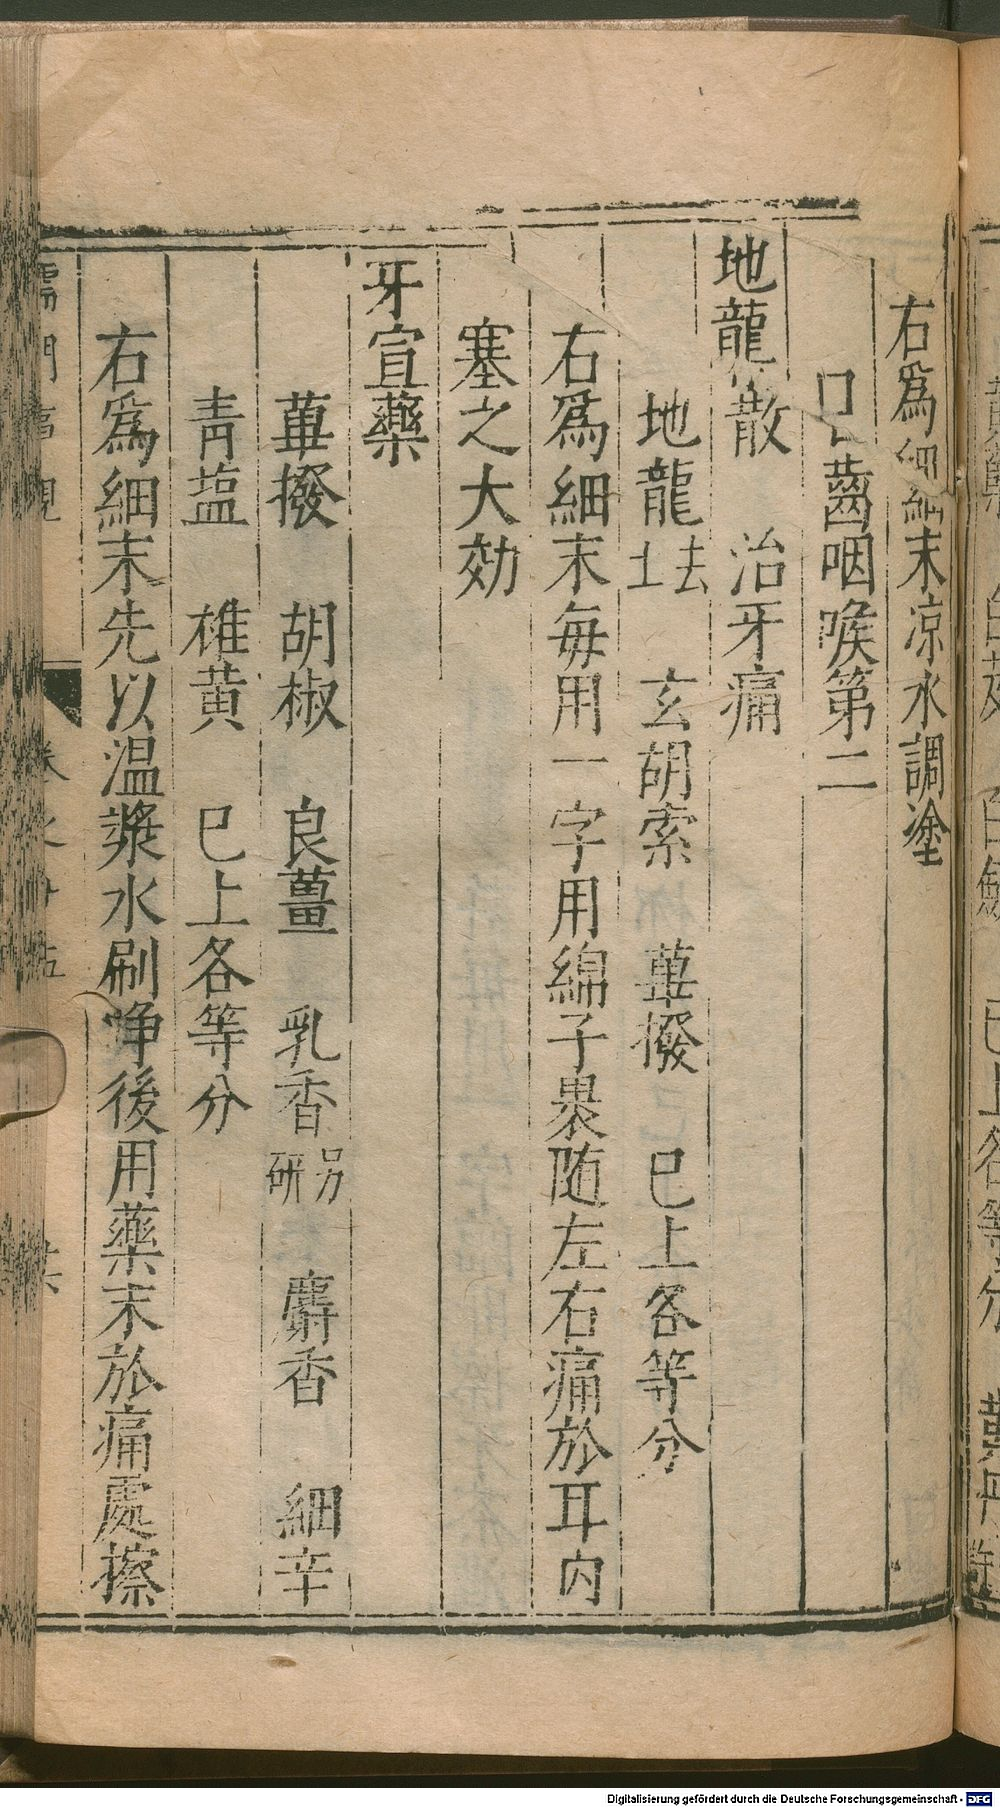 右為細細末凉水調塗
口齒咽喉第二
地龍散　治牙痛
地龍去土　玄胡索　蓽撥　已上各等分
右為細末每用一字用綿子裹随左右痛於耳内
塞之大効
牙宣藥
蓽撥　胡椒　良薑　乳香另研　麝香　細辛
青塩　雄黄　已上各等分
右為細末先以温漿水刷净後用藥末於痛處擦
門
Digitalisierung gefördert durch die Deutsche Forschungsgemeinschaft - DFG